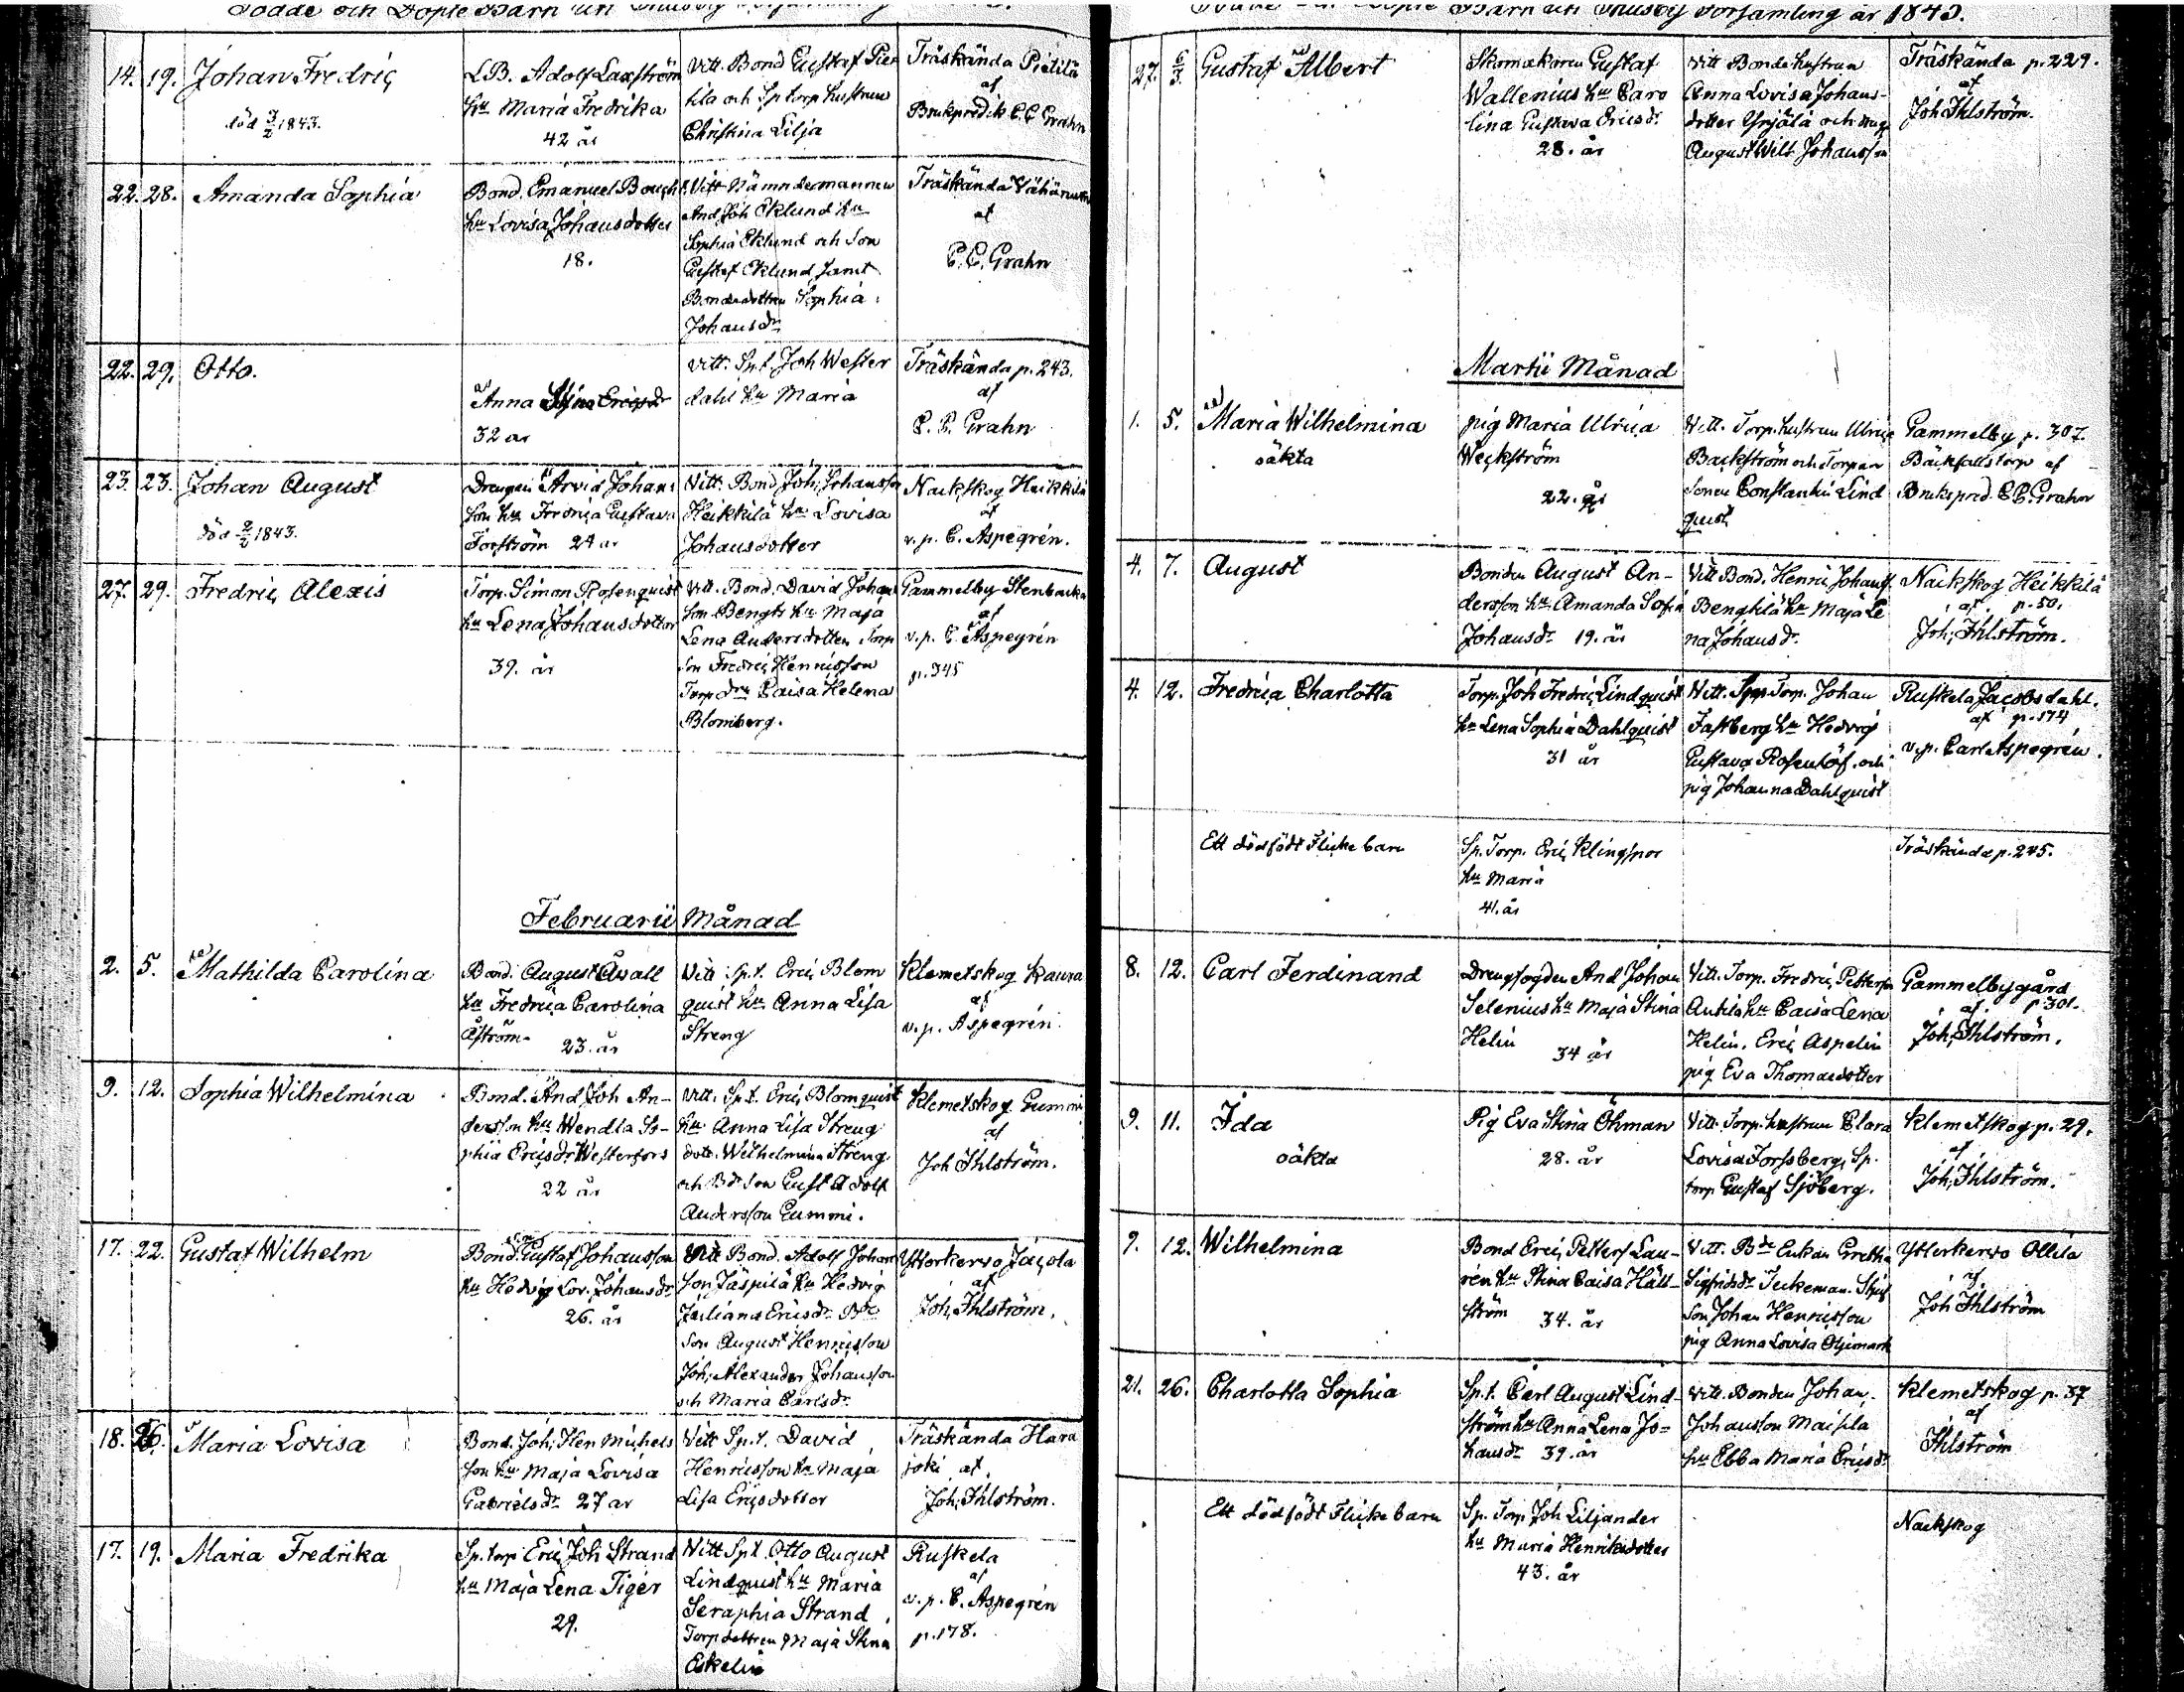 Födde och Döpte Barn uti
14. 19. Johan Fredric
död 3/2 1843.
L.B. Adolf Laxström
hu Maria Fredrika
42 år
Vitt. Bond Gustaf Pie
tila och Sp torp hustrun
Christina Lilja
Träskända Pietilä
af
Brukspredik C.C. Grahn
22. 28. Amanda Sophia
Bond. Emanuel Bough
hu Lovisa Johansdotter
18.
Vitt Nämndemannen
And Joh Eklund hu
Sophia Eklund och Son
Gustaf Eklund samt
Bondedottren Sophia
Johansdr
Träskända
af
C. C. Grahn
22. 29. Otto.
Anna Stina Ericsdr
32 år
Vitt. Sp.t. Joh Wester
dahl hu Maria
Träskända p. 243.
af
C. C. Grahn
23. 23. Johan August
död 2/2 1843.
Drengen Arvid Johans
son hu Fredrica Gustava
Forström 24 år
Vitt. Bond. Joh. Johansson
Heikkilä hu Lovisa
Johansdotter
Nackskog Heikkilä
af
v.p. C. Aspegrén.
27. 29. Fredric Alexis
Torp. Simon Rosenquist
hu Lena Johansdotter
39. år
Vitt. Bond. David Johan
son Bengts hu Maja
Lena Andersdotter Torp
son Fredric Henricsson
Torp dru Caisa Helena
Blomberg.
Gammelby Stenbacka
af
v.p. C. Aspegrén
p. 345
Februarii Månad
2. 5. Mathilda Carolina
Bond. August Åvall
hu Fredrica Carolina
Åström 23. år
Vitt. Sp.t. Eric Blom
quist hu Anna Lisa
Streng
Klemetskog Kaura
af
v.p. Aspegrén
9. 12. Sophia Wilhelmina
Bond. And Joh An-
dersson hu Wendla So-
phia Ericsdr Westerfors
22 år
Vitt. Sp.t. Eric Blomquist
hu Anna Lisa Streng
dott. Wilhelmina Streng
och Bd son Gust Adolf
Andersson Gummi.
Klemetskog Gummi
af
Joh Ihlström.
17. 22. Gustaf Wilhelm
Bond. Gustaf Johansson
hu Hedvig Lov. Johansdr
26. år
Vitt Bond. Adolf Johan
son Jäspilä hu Hedvig
Juliana Ericsdr Bde
son August Henricsson
Joh. Alexander Johansson
och Maria Carlsdr
Ytterkervo Jacola
af
Joh. Ihlström.
18. 26. Maria Lovisa
Bond. Joh. Hen Michels
son hu Maja Lovisa
Gabrielsdr 27 år
Vitt Sp.t. David
Henricsson hu Maja
Lisa Ericsdotter
Träskända Hara
joki af
Joh. Ihlström.
17. 19. Maria Fredrika
Sp. torp Eric Joh Strand
hu Maja Lena Tiger
29.
Vitt Sp.t. Otto August
Lindquist hu Maria
Seraphia Strand
Torpdottren Maja Stina
Eskelin
Ruskela
af
v.p. C. Aspegrén
p. 178.
Barn uti Thusby Församling år 1843.
27. 6/3. Gustaf Albert
Skomakaren Gustaf
Wallenius hu Caro
lina Gustava Ericsdr
28. år
Vitt Bonde hustrun
Anna Lovisa Johans-
dotter Yrjälä och
August Wilh Johansson
Träskända p. 229.
af
Joh Ihlström.
Martii Månad
1. 5. Maria Wilhelmina
oäkta
pig Maria Ulrica
Weckström
22. år
Vitt. Torp. hustrun Ulrica
Backström och Torpar
sonen Constantin Lind
quist
Gammelby p. 307.
Bäckfalls torp af
Brukspred. C.C. Grahn
4. 7. August
Bonden August An-
dersson hu Amanda Sofia
Johansdr 19. år
Vitt Bond. Henric Johans
Bengtilä hu Maja Le
na Johansdr
Nackskog Heikkilä
af p. 50.
Joh. Ihlström.
4. 12. Fredrica Charlotta
Torp. Joh Fredric Lindquist
hu Lena Sophia Dahlquist
31 år
Vitt. Torp. Johan
Fastberg hu Hedvig
Gustava Rosenlöf. och
pig Johanna Dahlquist
Ruskela Jacobsdahl.
af p. 174
v.p. Carl Aspegrén.
Ett dödfödt Flicke barn
Sp. Torp. Eric Klingspor
hu Maria
41. år
Träskända p. 245.
8. 12. Carl Ferdinand
Drengfogden And Johan
Selenius hu Maja Stina
Helin 34 år
Vitt. Torp. Fredric Petterson
Antila hu Caisa Lena
Helin. Eric Aspelin
pig Eva Thomasdotter
Gammelbygård
af p. 301.
Joh. Ihlström.
9. 11. Ida
oäkta
Pig Eva Stina Öhman
28. år
Vitt. Torp. hustrun Clara
Lovisa Forssberg, Sp.
torp Gustaf Sjöberg.
Klemetskog p. 29.
af
Joh. Ihlström.
9. 12. Wilhelmina
Bond Eric Petters Lau-
rén hu Stina Caisa Häll-
ström 34. år
Vitt. Bde Enkan Gretha
Sigfridsdr
son Johan Henricsson
pig Anna Lovisa
Ytterkervo Ollila
af
Joh Ihlström
21. 26. Charlotta Sophia
Sp.t. Carl August Lind-
ström hu Anna Lena Jo-
hansdr 39. år
Vitt. Bonden Johan
Johansson Maisila
hu Ebba Maria Ericsdr
Klemetskog p. 37
af
Ihlström
Ett dödfödt Flicke barn
Sp. Torp Joh Liljander
hu Maria Henriksdotter
43. år
Nackskog